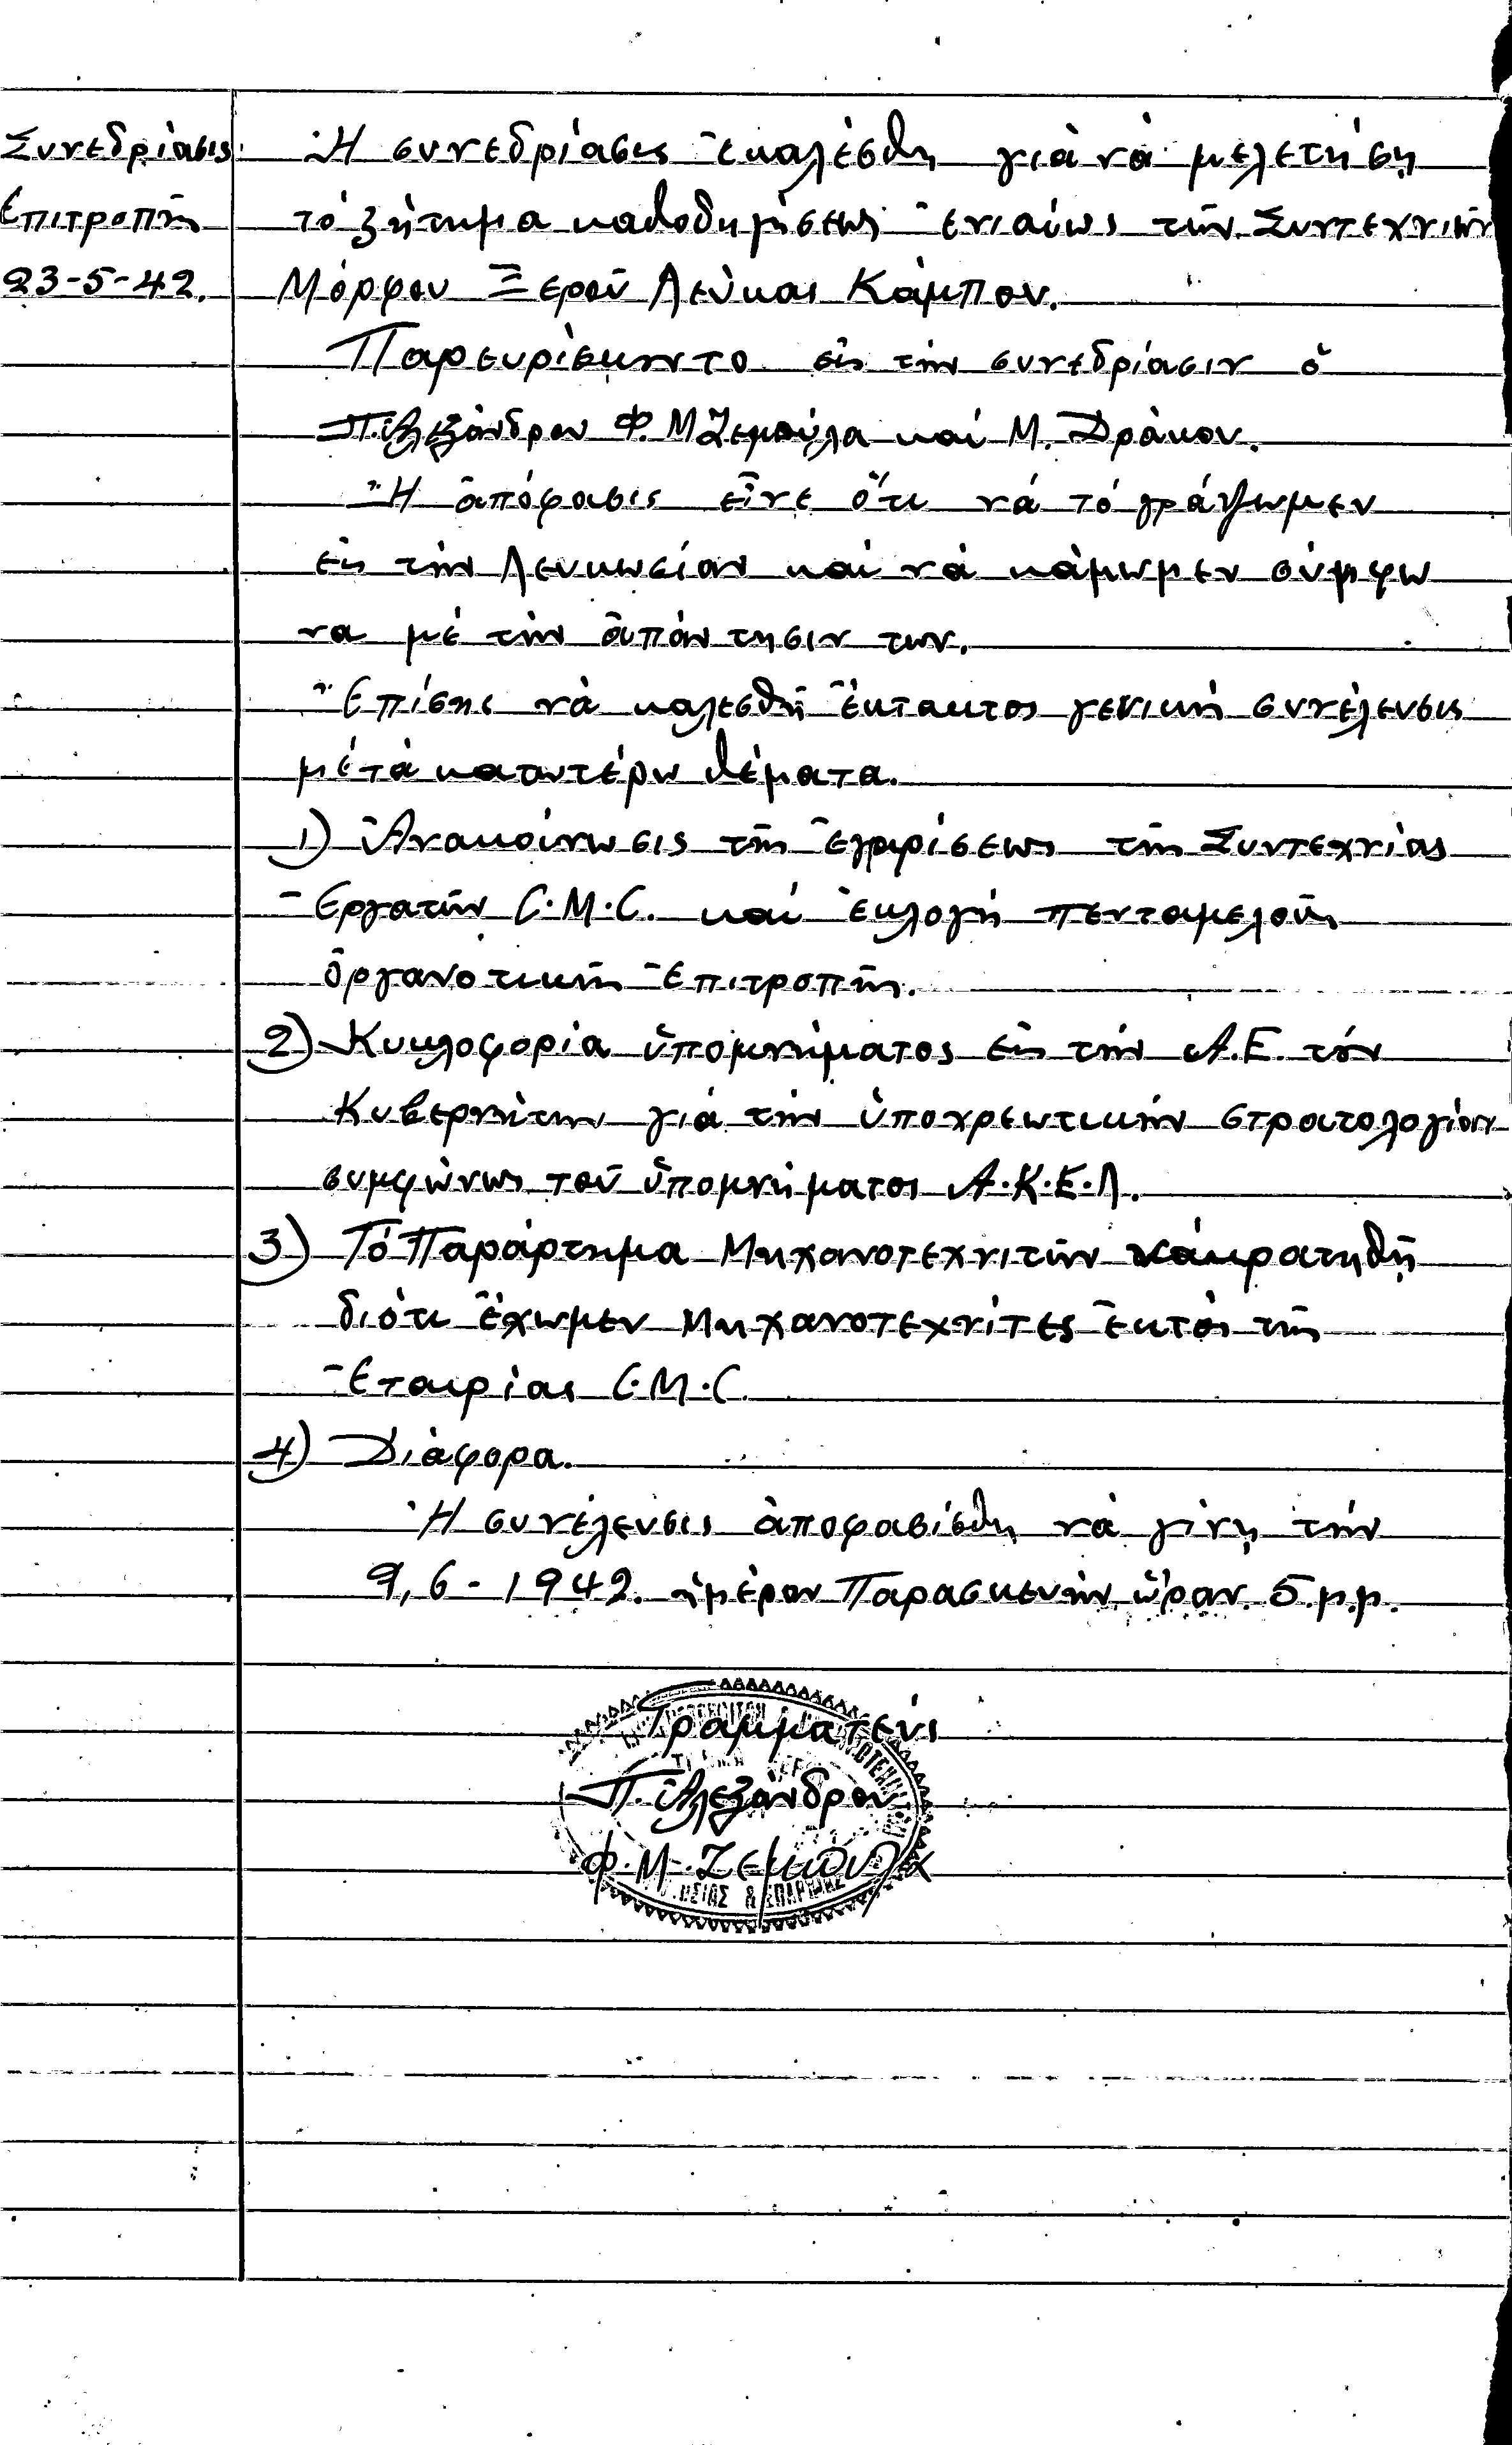 Συνεδρίασις
Επιτροπῆς
23-5-42.
Ἡ συνεδρίασις ἐκαλέσθη γιὰ νὰ μελετήση
τό ζήτημα καθοδηγήσεως ἐνιαίως τῶν Συντεχνιῶν
Μόρφου Ξεροῦ Λεύκας Κάμπου.
Παρευρίσκοντο εἰς τήν συνεδρίασιν ὁ
Π. Ἀλεξάνδρου Φ. Μ Ζεμπύλα καί Μ. Δράκου.
Ἡ ἀπόφασις εἶνε ὅτι νά τό γράψωμεν
εἰς τήν Λευκωσίαν καί νά κάμωμεν σύμφω
να μέ τήν ἀπάντησιν των.
Ἐπίσης νὰ καλεσθῆ ἔκτακτος γενική συνέλευσις
μέ τὰ κατωτέρω θέματα.
1) Ἀνακοίνωσις τῆς ἐγκρίσεως τῆς Συντεχνίας
Ἐργατῶν C.M.C. καί ἐκλογή πενταμελοῦς
ὀργανοτικῆς Ἐπιτροπῆς.
2) Κυκλοφορία ὑπομνήματος εἰς τήν Α.Ε. τόν
Κυβερνήτην γιά τήν ὑποχρεωτικήν στρατολογίαν
συμφώνως τοῦ ὑπομνήματος Α.Κ.Ε.Λ.
3) Τό Παράρτημα Μηχανοτεχνιτῶν νά κρατηθῆ
διότι ἔχωμεν Μηχανοτεχνίτες ἐκτός τῆς
Ἐταιρίας C.M.C.
4) Διάφορα.
Ἡ συνέλευσις ἀποφασίσθη νά γίνῃ τήν
9, 6-1942. ἡμέραν Παρασκευήν ὥραν 5.μ.μ.
Γραμματεύς
Π. Ἀλεξάνδρου
Φ. Μ. Ζεμπύλα